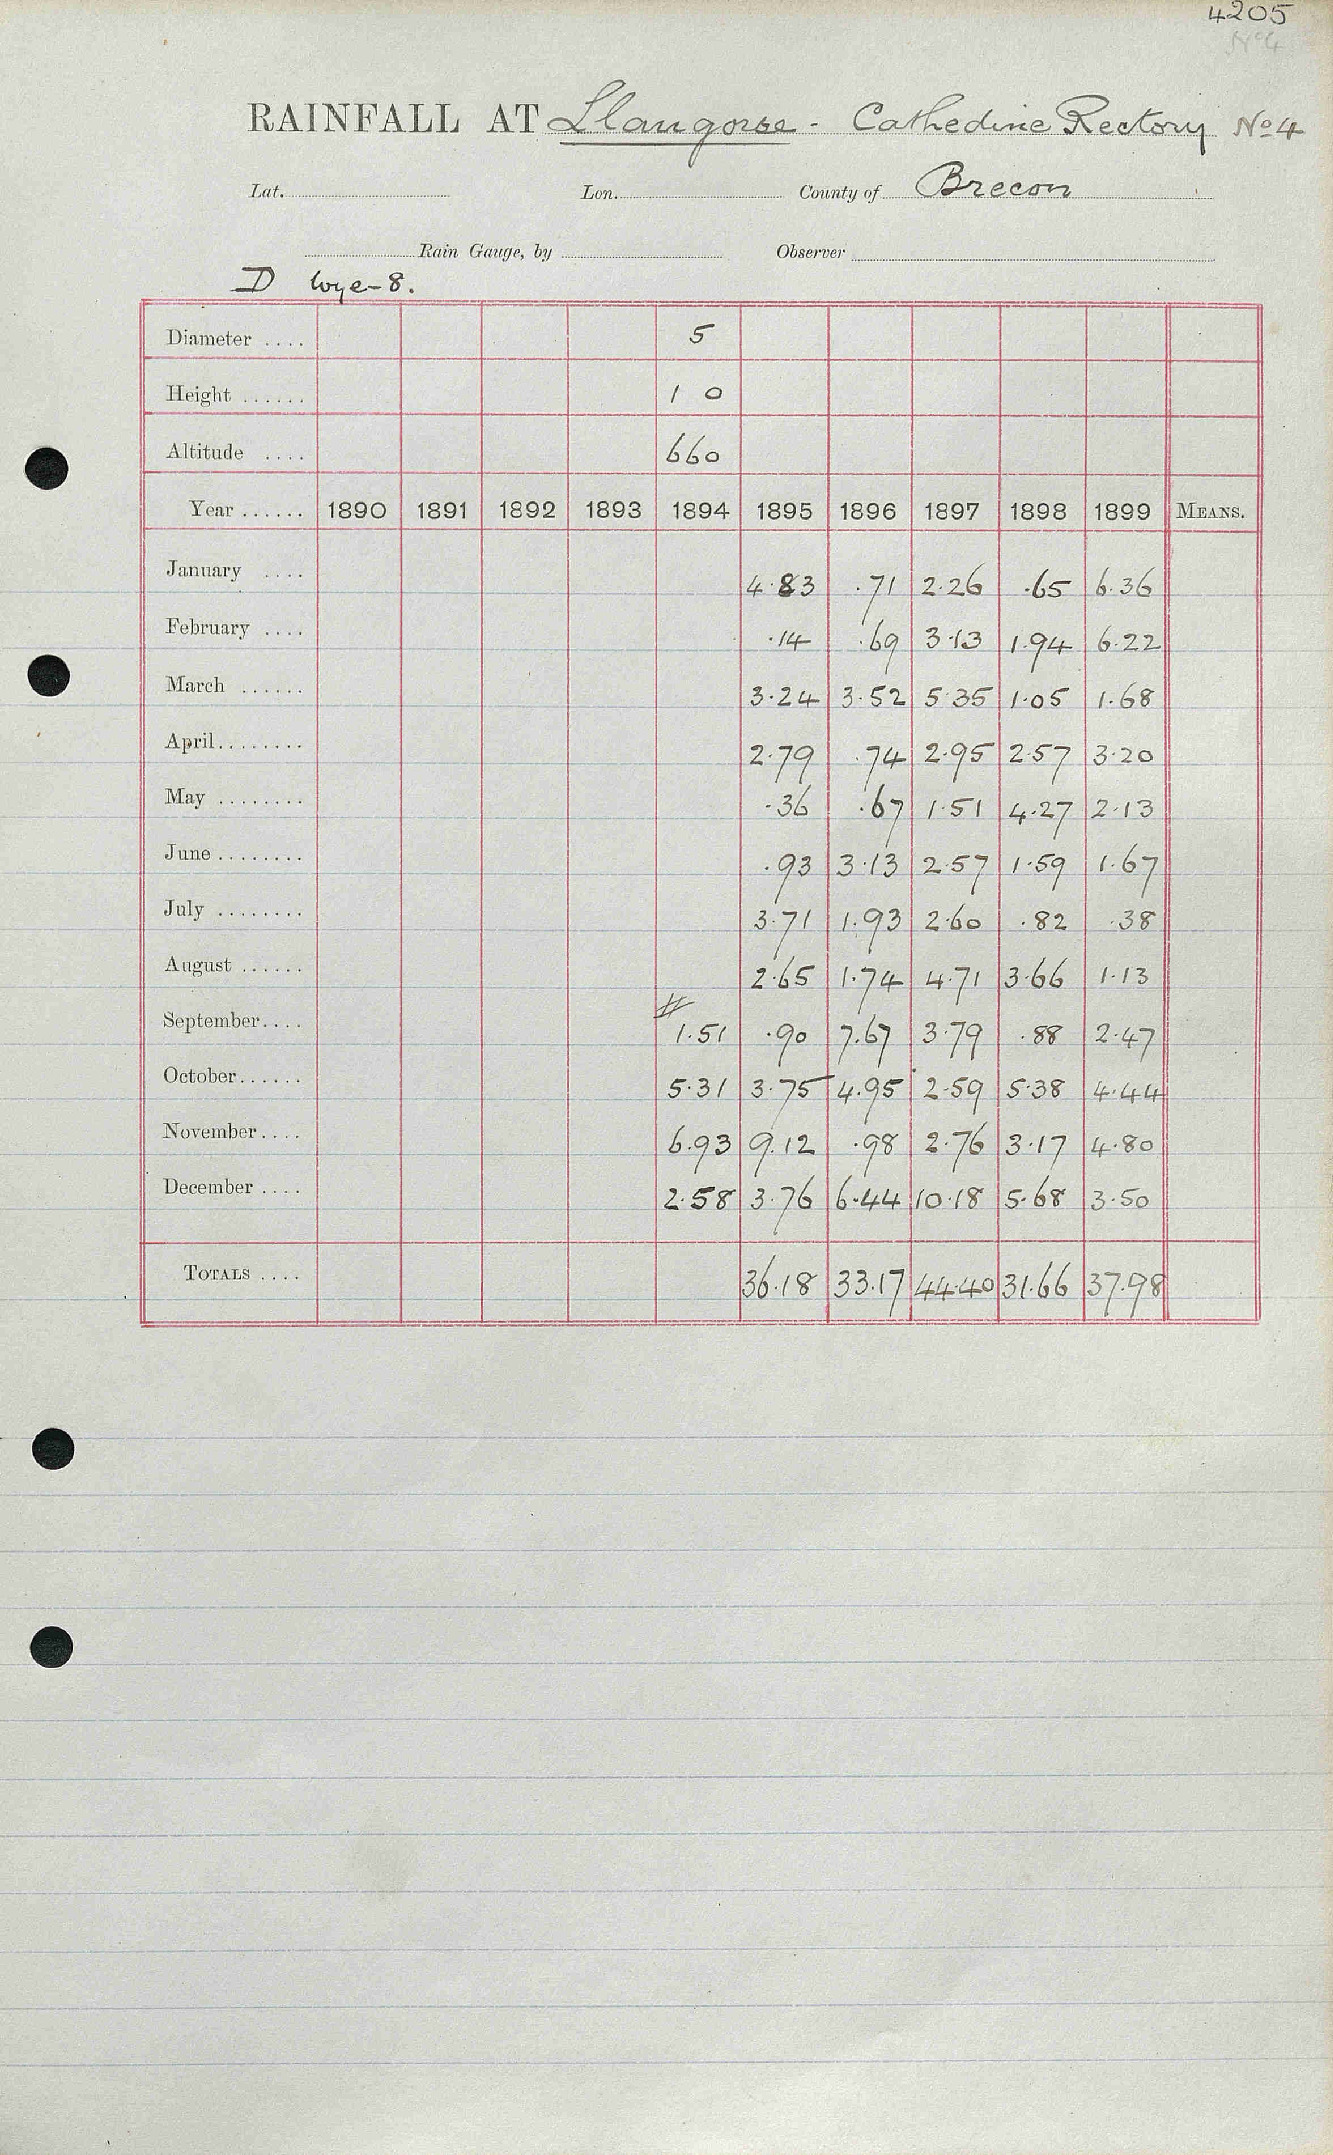 4205
No 4
RAINFALL AT Llangorse - Cathedine Rectory No 4
Lat. Lon. County of Brecon
Rain Gauge, by Observer
D Wye-8.
Diameter .... 5
Height ...... 1 0
Altitude .... 660
Year ...... 1890 1891 1892 1893 1894 1895 1896 1897 1898 1899 MEANS.
January .... 4.83 .71 2.26 .65 6.36
February .... .14 .69 3.13 1.94 6.22
March ...... 3.24 3.52 5.35 1.05 1.68
April........ 2.79 .74 2.95 2.57 3.20
May ........ .36 .67 1.51 4.27 2.13
June........ .93 3.13 2.57 1.59 1.67
July ........ 3.71 1.93 2.60 .82 .38
August ...... 2.65 1.74 4.71 3.66 1.13
September.... 1.51 .90 7.67 3.79 .88 2.47
October...... 5.31 3.75 4.95 2.59 5.38 4.44
November.... 6.93 9.12 .98 2.76 3.17 4.80
December .... 2.58 3.76 6.44 10.18 5.68 3.50
TOTALS .... 36.18 33.17 44.40 31.66 37.98